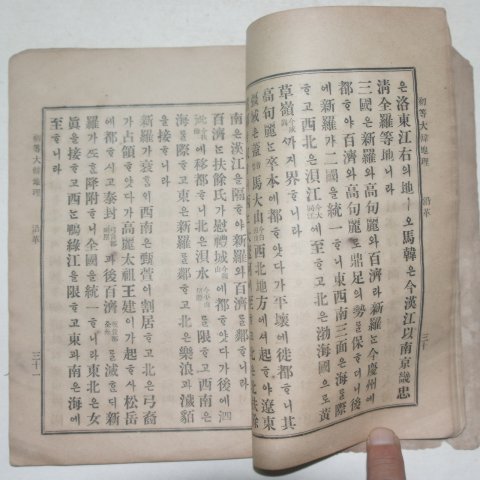 初等大韓地理 沿革 三十
은洛東江右의地ㅣ오馬韓은今漢江以南京畿忠
清全羅等地니라
三國은新羅와高句麗와百濟라新羅는今慶州에
都ᄒᆞ야百濟와高句麗로鼎足의勢를保ᄒᆞ더니後
에新羅가二國을統一ᄒᆞ니東西南三面은海를際
ᄒᆞ고西北은浿江今大同江에至ᄒᆞ고北은渤海國으로黃
草嶺今咸興까지界ᄒᆞ니라
高句麗는卒本에都ᄒᆞ얏다가平壤에徙都ᄒᆞ니其
疆域은蓋馬大山西北地方에셔起ᄒᆞ야遼東
南은漢江을隔ᄒᆞ야新羅와百濟
百濟는扶餘氏가慰禮城에都ᄒᆞ얏다가後에泗
沘에移都ᄒᆞ니北은浿水를限ᄒᆞ고西南은
海를際ᄒᆞ고東은新羅를鄰ᄒᆞ고北은樂浪과濊貊
을接ᄒᆞ니라
新羅가衰ᄒᆞᆷ이西南은甄萱이割居ᄒᆞ고北은弓裔
가占領ᄒᆞ얏다가高麗太祖王建이가起ᄒᆞ샤松岳
에都ᄒᆞ시고泰封과後百濟를滅ᄒᆞ되新
羅가ᄯᅩᄒᆞᆫ降附ᄒᆞ니全國을統一ᄒᆞ니東北은女
眞을接ᄒᆞ고西는鴨綠江을限ᄒᆞ고東과南은海에
至ᄒᆞ니라
初等大韓地理 沿革 三十一